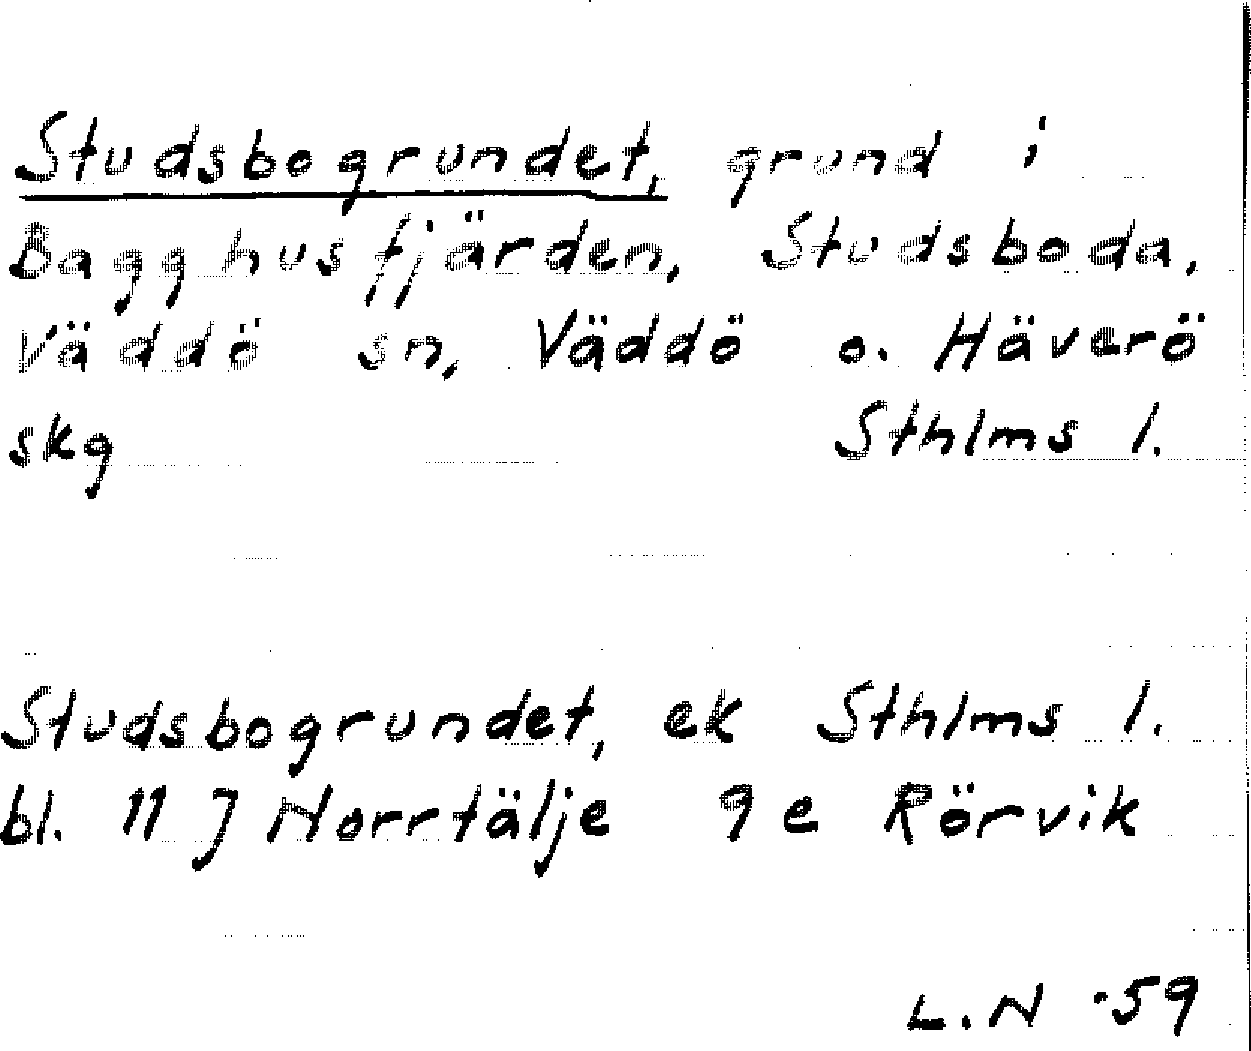 Studsbogrundet, grund i
Bagghusfjärden, Studsboda,
Väddö sn, Väddö o. Häverö
skg Sthlms l.
Studsbogrundet, ek Sthlms l.
bl. 11 J Norrtälje 9 e Rörvik
L.N -59